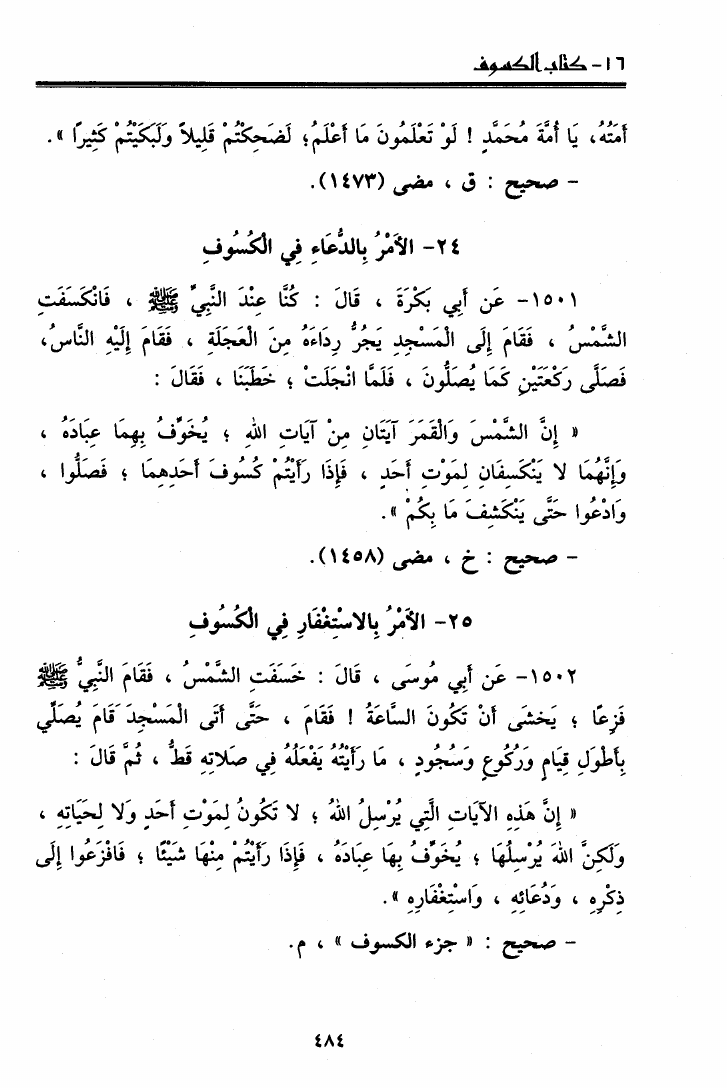 ١٦- كتاب الكسوف
أَمَتُهُ، يَا أُمَّةَ مُحَمَّدٍ ! لَوْ تَعْلَمُونَ مَا أَعْلَمُ؛ لَضَحِكْتُمْ قَلِيلاً وَلَبَكَيْتُمْ كَثِيرًا ».
- صحيح : ق ، مضى (١٤٧٣).
٢٤- الأَمْرُ بِالدُّعَاءِ فِي الْكُسُوفِ
١٥٠١- عَن أَبِي بَكْرَةَ ، قَالَ : كُنَّا عِنْدَ النَّبِيِّ ﷺ ، فَانْكَسَفَتِ
الشَّمْسُ ، فَقَامَ إِلَى الْمَسْجِدِ يَجُرُّ رِدَاءَهُ مِنَ الْعَجَلَةِ ، فَقَامَ إِلَيْهِ النَّاسُ،
فَصَلَّى رَكْعَتَيْنِ كَمَا يُصَلُّونَ ، فَلَمَّا انْجَلَتْ ؛ خَطَبَنَا ، فَقَالَ :
« إِنَّ الشَّمْسَ وَالْقَمَرَ آيَتَانِ مِنْ آيَاتِ اللهِ ؛ يُخَوِّفُ بِهِمَا عِبَادَهُ ،
وَإِنَّهُمَا لا يَنْكَسِفَانِ لِمَوْتِ أَحَدٍ ، فَإِذَا رَأَيْتُمْ كُسُوفَ أَحَدِهِمَا ؛ فَصَلُّوا ،
وَادْعُوا حَتَّى يَنْكَشِفَ مَا بِكُمْ ».
- صحيح : خ ، مضى (١٤٥٨).
٢٥- الأَمْرُ بِالاسْتِغْفَارِ فِي الْكُسُوفِ
١٥٠٢- عَن أَبِي مُوسَى ، قَالَ : خَسَفَتِ الشَّمْسُ ، فَقَامَ النَّبِيُّ ﷺ
فَزِعًا ؛ يَخْشَى أَنْ تَكُونَ السَّاعَةُ ! فَقَامَ ، حَتَّى أَتَى الْمَسْجِدَ قَامَ يُصَلِّي
بِأَطْوَلِ قِيَامٍ وَرُكُوعٍ وَسُجُودٍ ، مَا رَأَيْتُهُ يَفْعَلُهُ فِي صَلاتِهِ قَطُّ ، ثُمَّ قَالَ :
« إِنَّ هَذِهِ الآيَاتِ الَّتِي يُرْسِلُ اللهُ ؛ لا تَكُونُ لِمَوْتِ أَحَدٍ وَلا لِحَيَاتِهِ ،
وَلَكِنَّ اللهَ يُرْسِلُهَا ؛ يُخَوِّفُ بِهَا عِبَادَهُ ، فَإِذَا رَأَيْتُمْ مِنْهَا شَيْئًا ؛ فَافْزَعُوا إِلَى
ذِكْرِهِ ، وَدُعَائِهِ ، وَاسْتِغْفَارِهِ ».
- صحيح : « جزء الكسوف » ، م.
٤٨٤